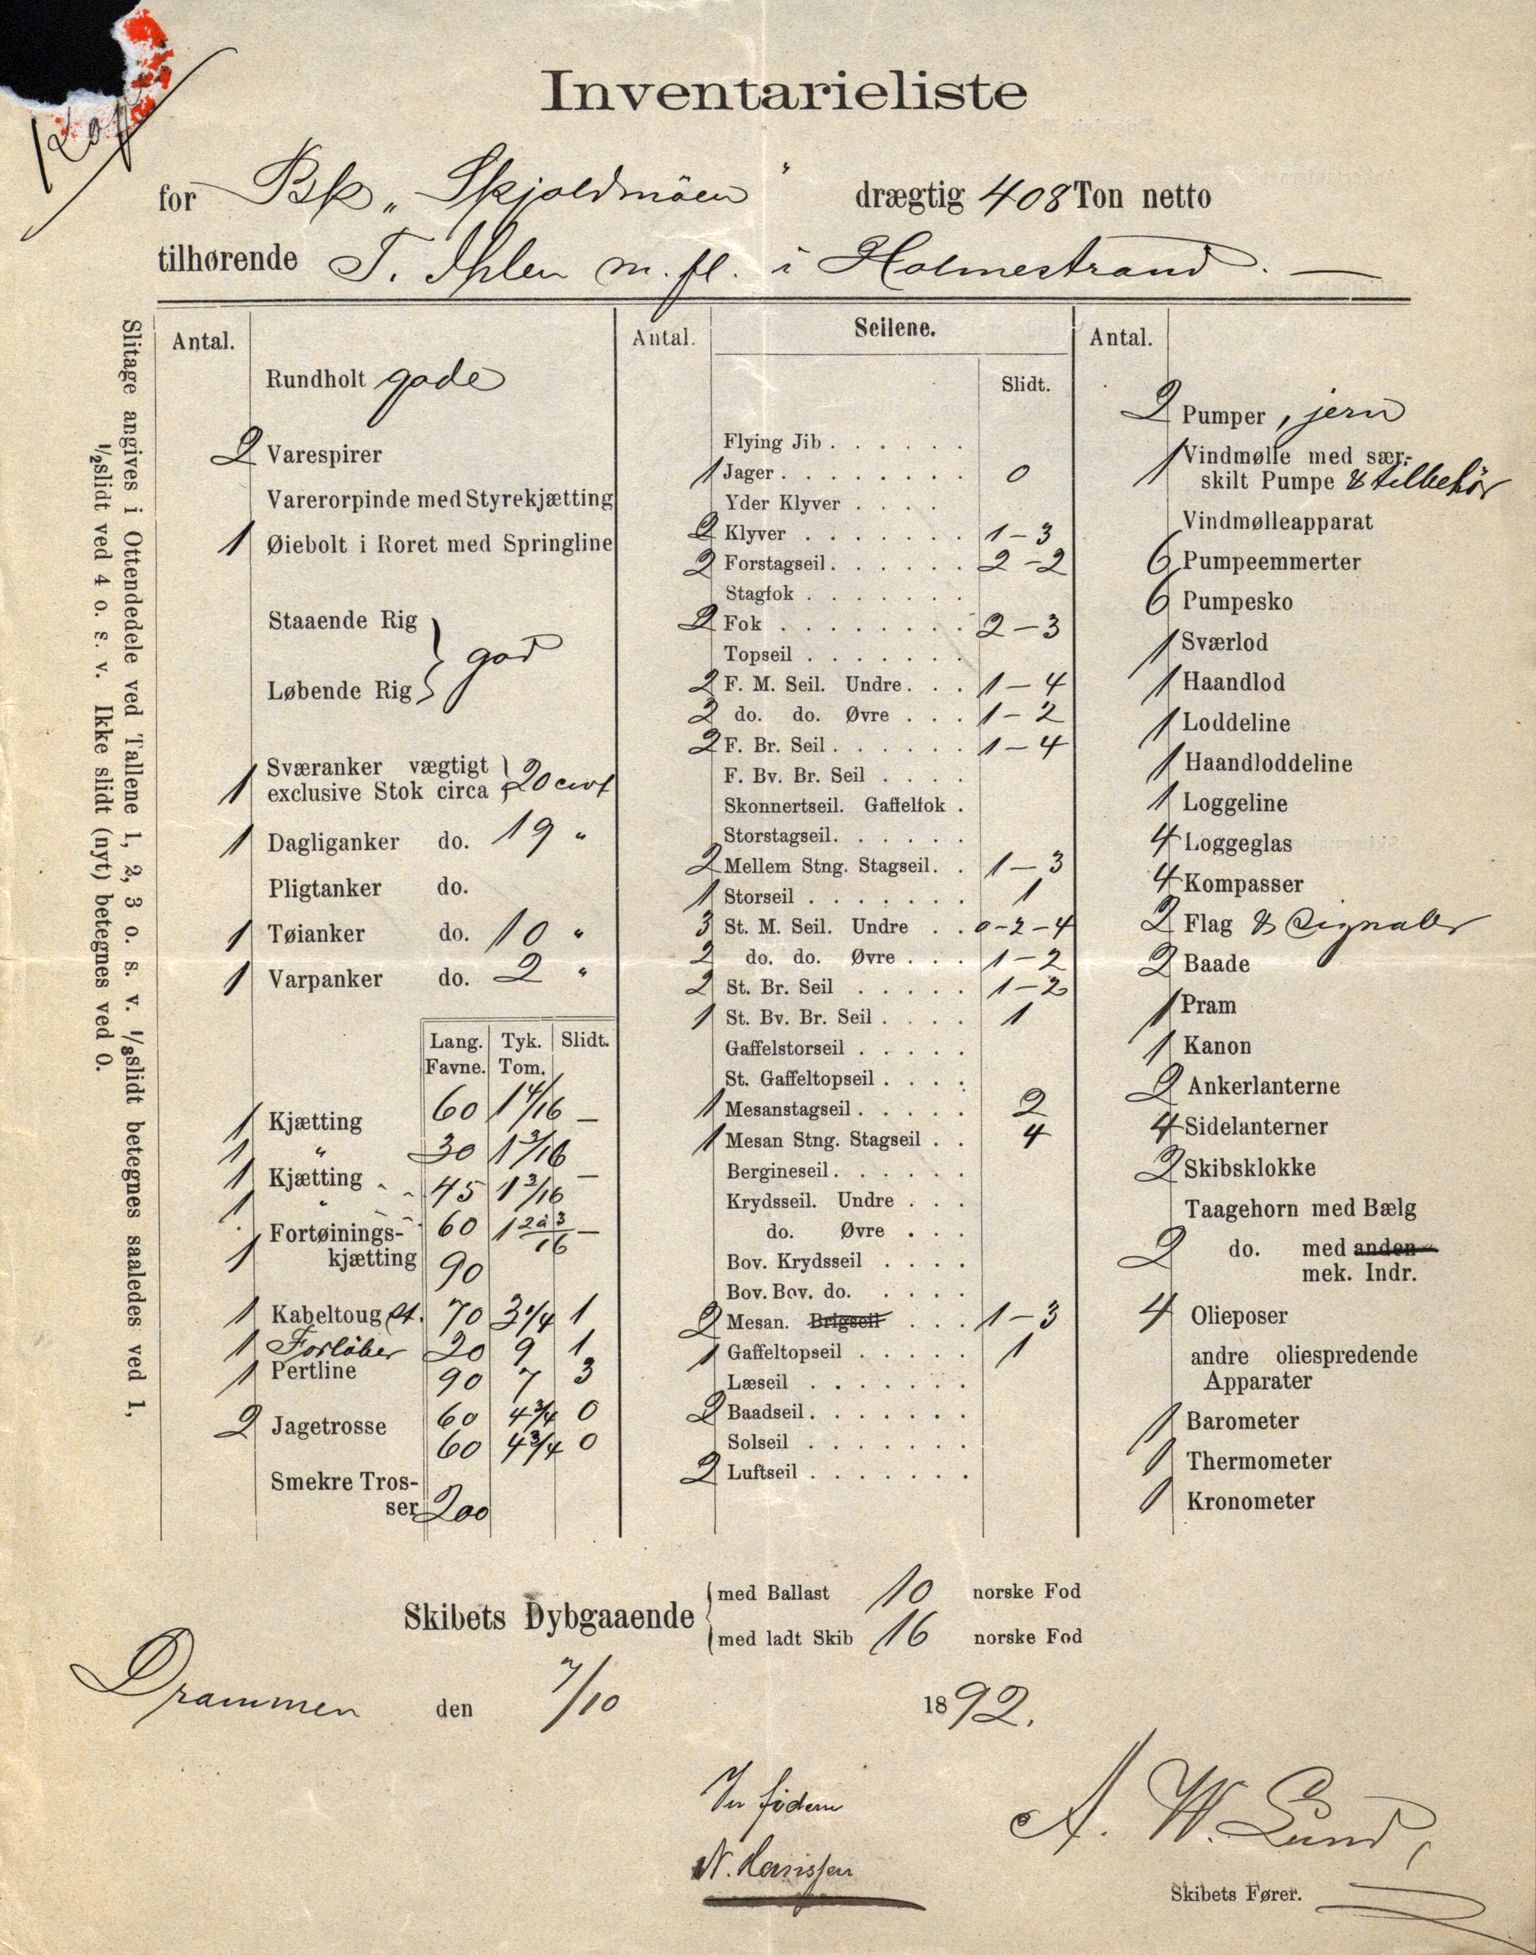 Kopi
Inventarieliste
for Bk „Skjoldmöen" drægtig 408 Ton netto
tilhørende T. Ihlen m. fl. i Holmestrand.
Slitage angives i Ottendedele ved Tallene 1, 2, 3 o. s. v. 1/8 slidt betegnes saaledes ved 1,
1/2 slidt ved 4 o. s. v. Ikke slidt (nyt) betegnes ved 0.
Antal.
Rundholt gode
2 Varespirer
Varerorpinde med Styrekjætting
1 Øiebolt i Roret med Springline
Staaende Rig
god
Løbende Rig
Sværanker vægtigt
1 exclusive Stok circa 20 cwt
1 Dagliganker do. 19 "
Pligtanker do.
1 Tøianker do. 10 "
1 Varpanker do. 2 "
Lang. Tyk. Slidt.
Favne. Tom.
1 Kjætting 60 1 4/16 —
1 " 30 1 3/16
1 Kjætting „ „ 45 1 3/16 —
1 "
Fortøinings- 60 1 2 à 3/16 —
1 kjætting 90
1 Kabeltoug St. 70 3 1/4 1
1 Forløber 20 9 1
1 Pertline 90 7 3
2 Jagetrosse 60 4 3/4 0
60 4 3/4 0
Smekre Tros-
ser 200
Antal. Seilene.
Slidt.
Flying Jib . . . . . .
1 Jager . . . . . . . . 0
Yder Klyver . . . .
2 Klyver . . . . . . . 1 – 3
2 Forstagseil . . . . . . 2 – 2
Stagfok . . . . . . .
2 Fok . . . . . . . . 2 – 3
Topseil . . . . . . .
2 F. M. Seil. Undre . . . 1 – 4
2 do. do. Øvre . . . 1 – 2
2 F. Br. Seil . . . . . . 1 – 4
F. Bv. Br. Seil . . . .
Skonnertseil. Gaffelfok .
Storstagseil . . . . . .
2 Mellem Stng. Stagseil . . 1 – 3
1 Storseil . . . . . . . 1
3 St. M. Seil. Undre . . 0 – 2 – 4
2 do. do. Øvre . . . 1 – 2
2 St. Br. Seil . . . . . 1 – 2
1 St. Bv. Br. Seil . . . . 1
Gaffelstorseil . . . . .
St. Gaffeltopseil . . . .
1 Mesanstagseil . . . . . 2
1 Mesan Stng. Stagseil . . 4
Bergineseil . . . . . .
Krydsseil. Undre . . .
do. Øvre . . .
Bov. Krydsseil . . . .
Bov. Bov. do. . . . .
2 Mesan. Brigseil . . . 1 – 3
1 Gaffeltopseil . . . . . 1
Læseil . . . . . . .
2 Baadseil . . . . . . .
Solseil . . . . . . .
2 Luftseil . . . . . . .
Antal.
2 Pumper, jern
1 Vindmølle med sær-
skilt Pumpe & tilbehör
Vindmølleapparat
6 Pumpeemmerter
6 Pumpesko
1 Sværlod
1 Haandlod
1 Loddeline
1 Haandloddeline
1 Loggeline
4 Loggeglas
4 Kompasser
2 Flag & Signaler
2 Baade
1 Pram
1 Kanon
2 Ankerlanterne
4 Sidelanterner
2 Skibsklokke
Taagehorn med Bælg
2 do. med anden
mek. Indr.
4 Olieposer
andre oliespredende
Apparater
1 Barometer
1 Thermometer
1 Kronometer
Skibets Dybgaaende
med Ballast 10 norske Fod
med ladt Skib 16 norske Fod
Drammen den 7/10 1892.
In fidem
N. Hanssen
A. W. Lund,
Skibets Fører.